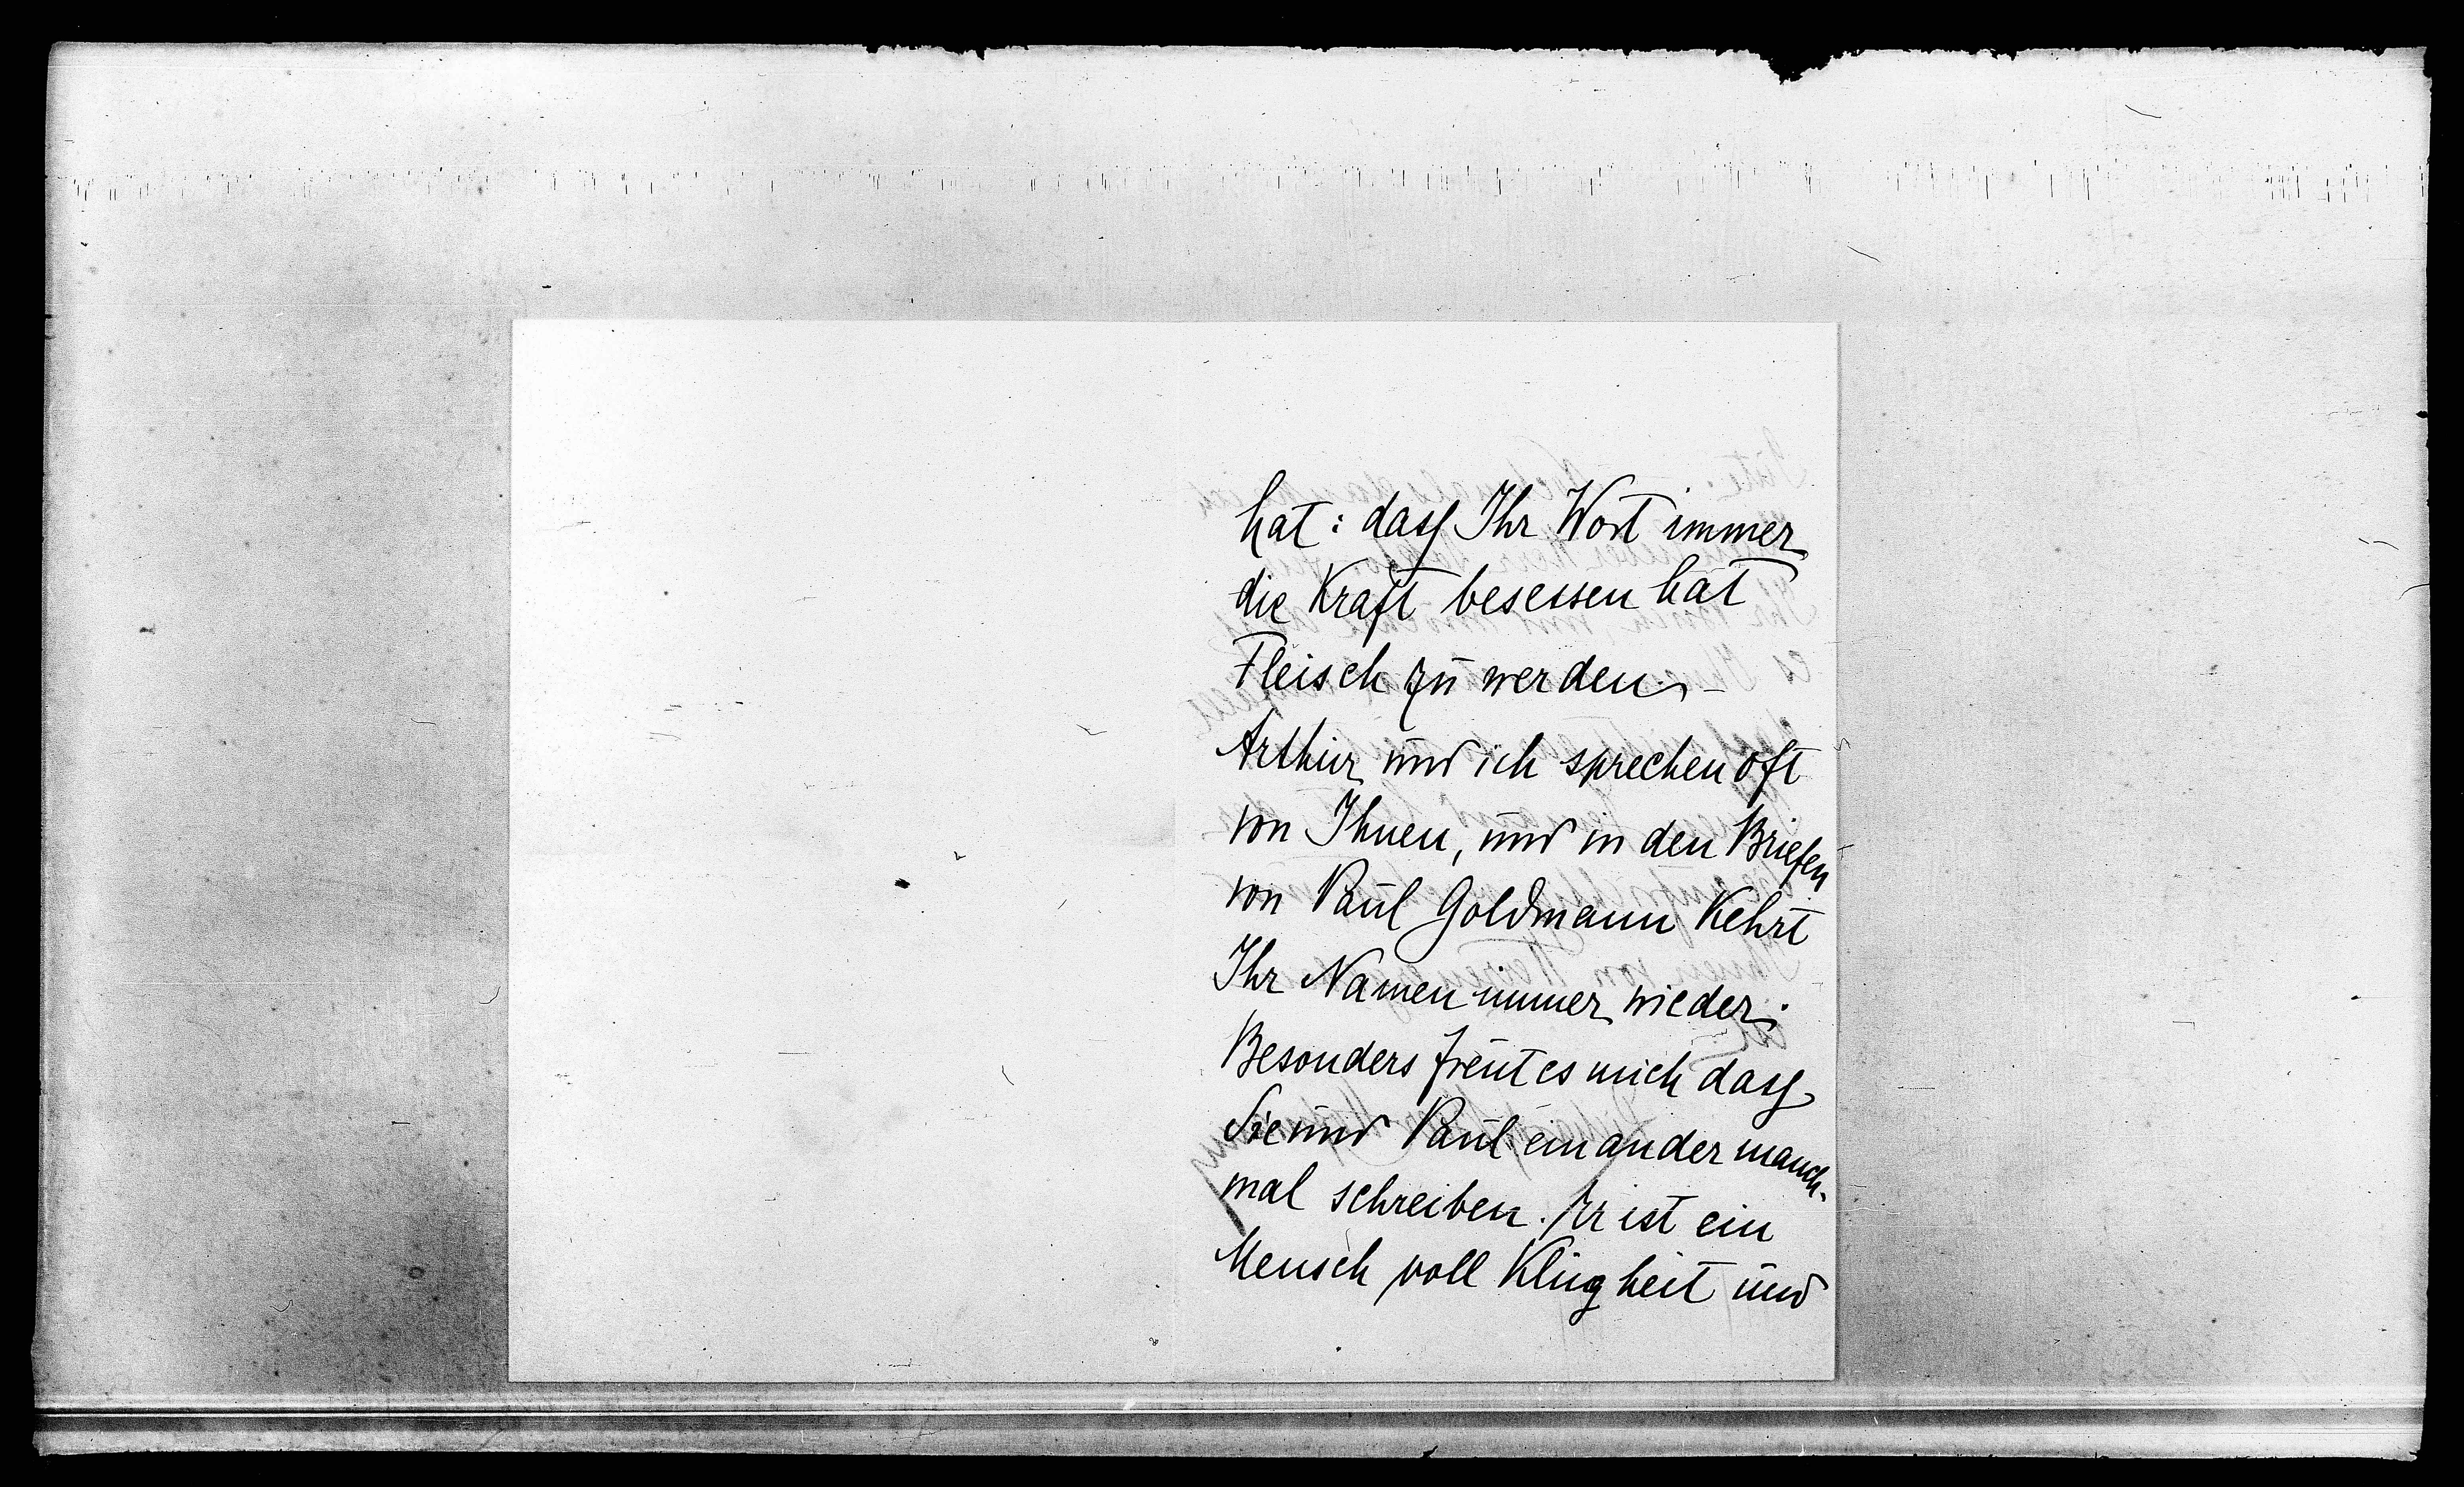 hat: dass Ihr Wort immer
die Kraft besessen hat
Fleisch zu werden. –
Arthur und ich sprechen oft
von Ihnen, und in den Briefen
von Paul Goldmann kehrt
Ihr Namen immer wieder.
Besonders freut es mich dass
Sie und Paul einander manch-
mal schreiben. Er ist ein
Mensch voll Klugheit und